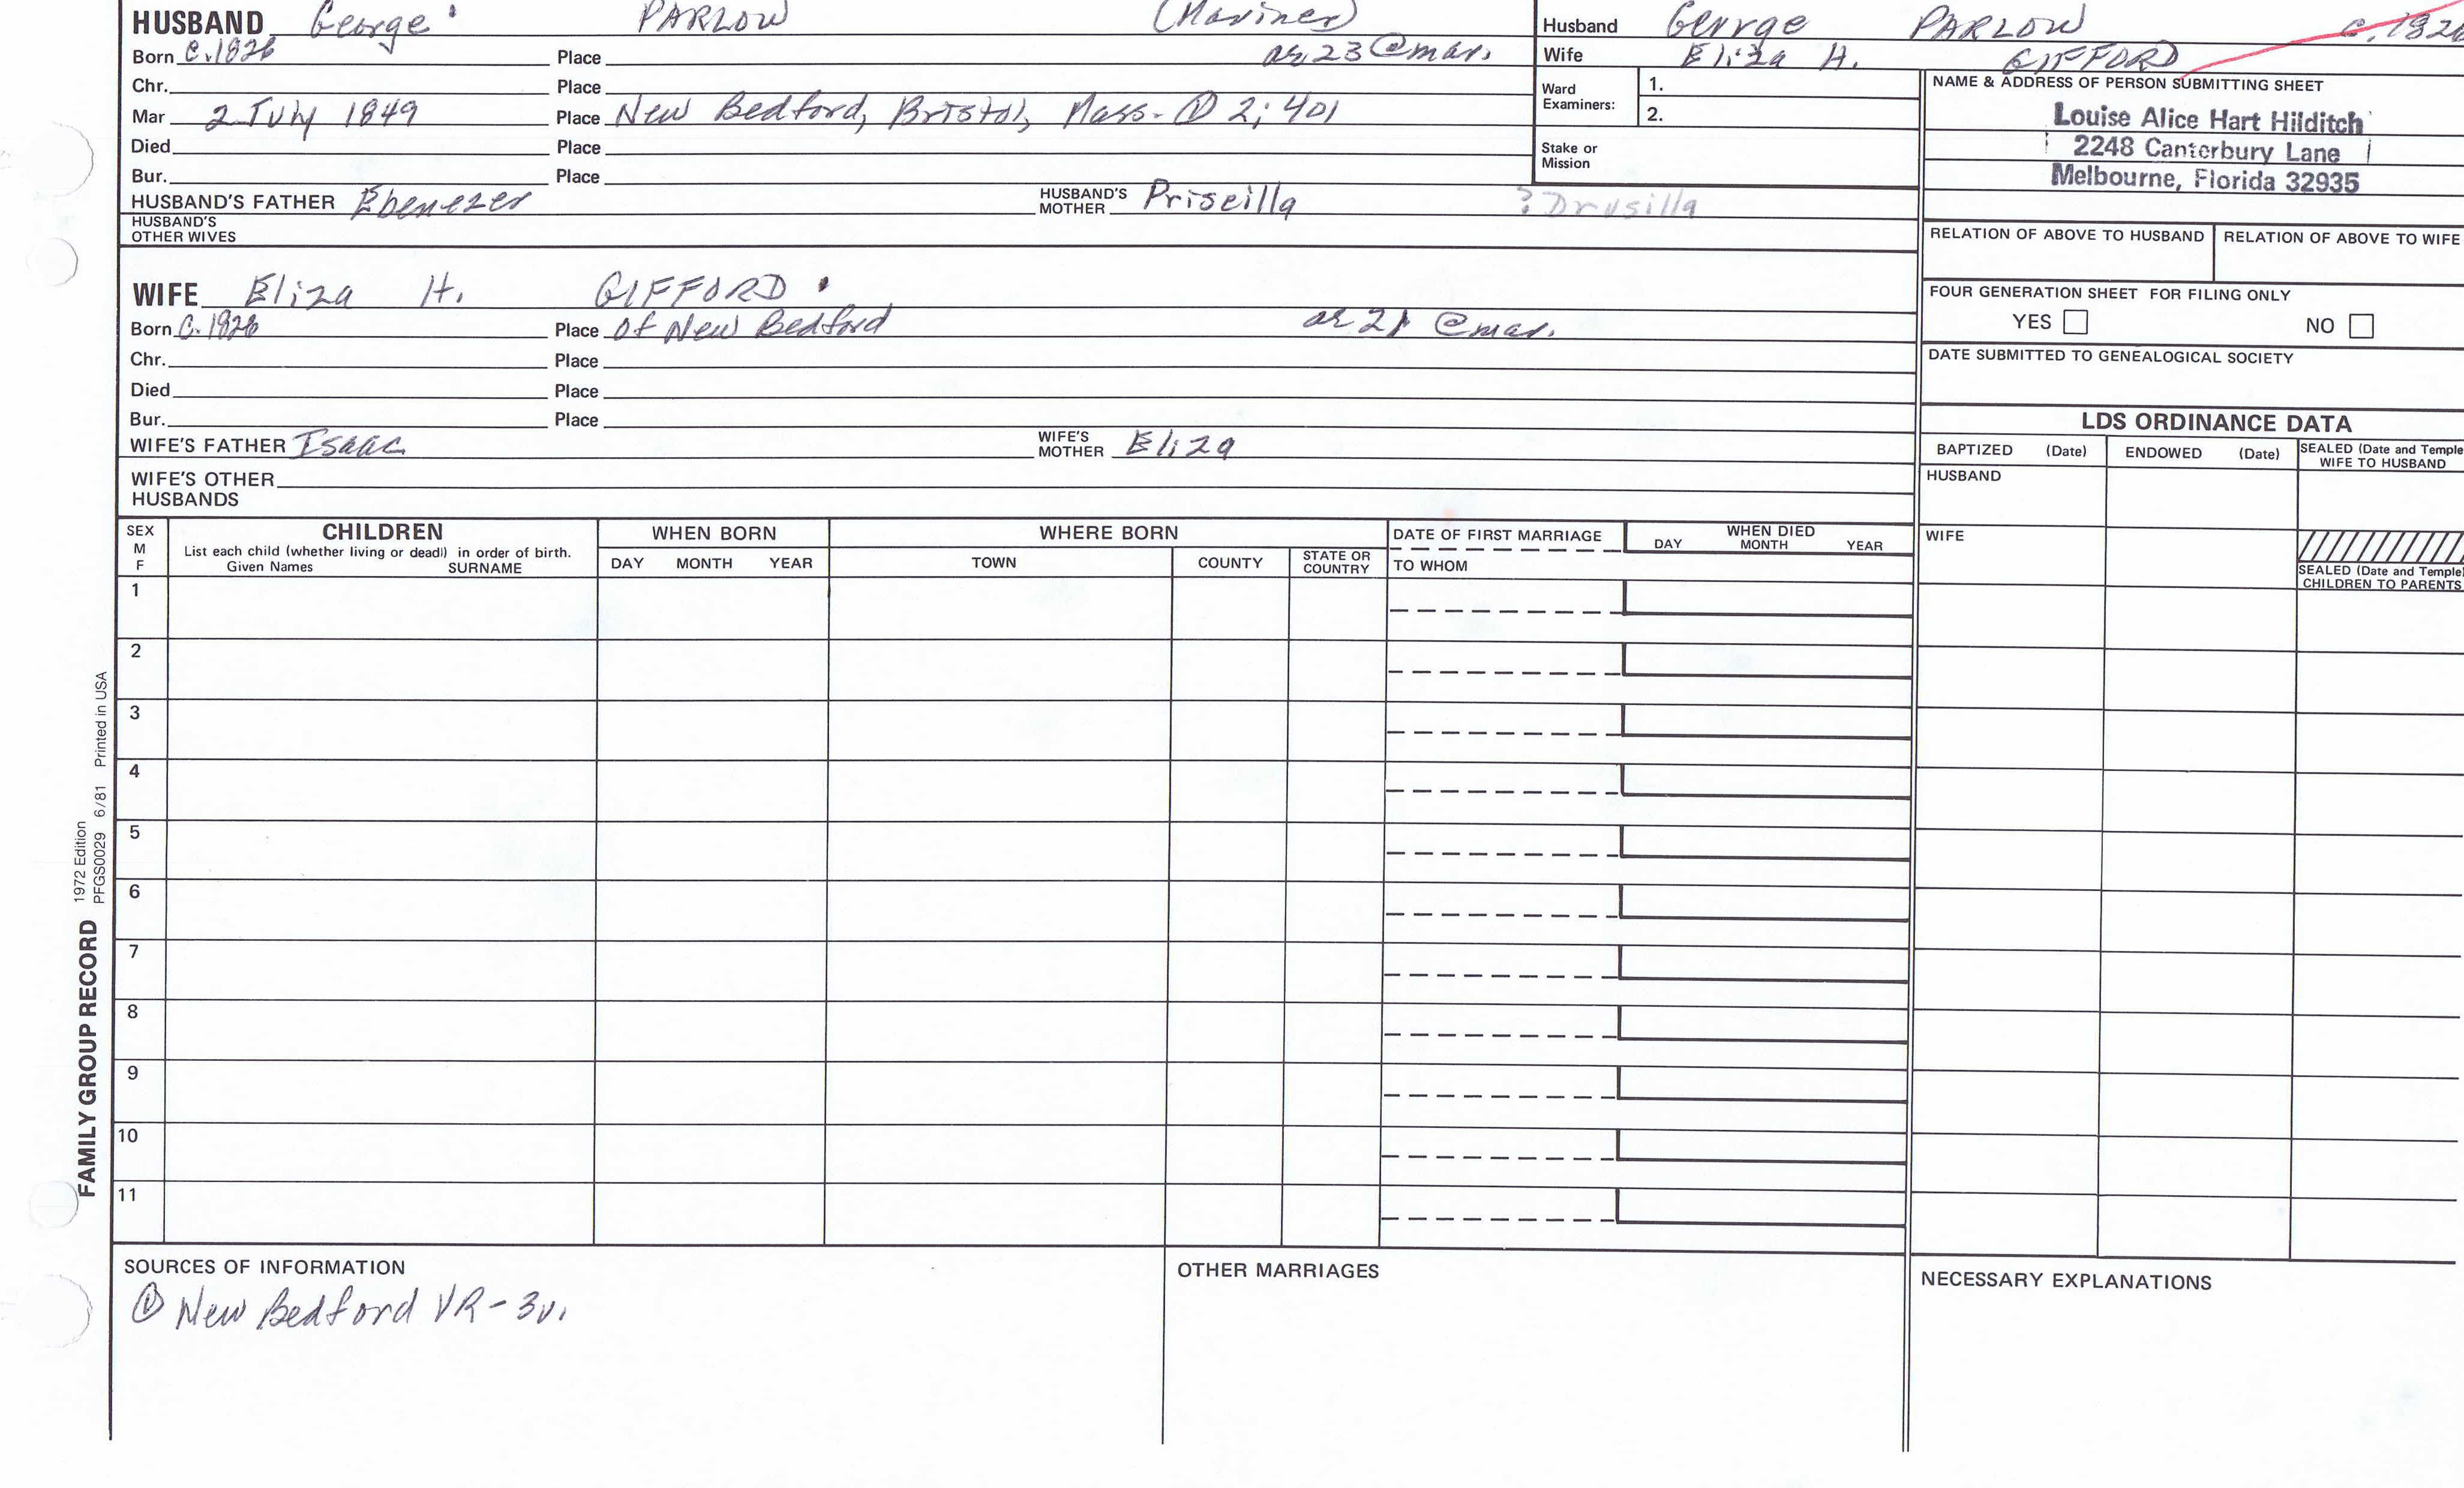 HUSBAND George PARLOW (Mariner)
Born c.1826 Place ae 23 @mar.
Chr. Place
Mar 2 July 1849 Place New Bedford, Bristol, Mass- ① 2:401
Died Place
Bur. Place
HUSBAND'S FATHER Ebenezer HUSBAND'S MOTHER Priscilla ? Drusilla
HUSBAND'S OTHER WIVES
WIFE Eliza H. GIFFORD
Born c.1828 Place of New Bedford ae 21 @mar.
Chr. Place
Died Place
Bur. Place
WIFE'S FATHER Isaac WIFE'S MOTHER Eliza
WIFE'S OTHER HUSBANDS
Husband George PARLOW c.1826
Wife Eliza H. GIFFORD
Ward Examiners: 1.
2.
Stake or Mission
NAME & ADDRESS OF PERSON SUBMITTING SHEET
Louise Alice Hart Hilditch
2248 Canterbury Lane
Melbourne, Florida 32935
RELATION OF ABOVE TO HUSBAND RELATION OF ABOVE TO WIFE
FOUR GENERATION SHEET FOR FILING ONLY
YES NO
DATE SUBMITTED TO GENEALOGICAL SOCIETY
LDS ORDINANCE DATA
BAPTIZED (Date) ENDOWED (Date) SEALED (Date and Temple) WIFE TO HUSBAND
HUSBAND
WIFE
SEALED (Date and Temple) CHILDREN TO PARENTS
SEX M F
CHILDREN
List each child (whether living or dead) in order of birth.
Given Names SURNAME
WHEN BORN
DAY MONTH YEAR
WHERE BORN
TOWN COUNTY STATE OR COUNTRY
DATE OF FIRST MARRIAGE
TO WHOM
WHEN DIED
DAY MONTH YEAR
1
2
3
4
5
6
7
8
9
10
11
SOURCES OF INFORMATION
① New Bedford VR-3v.
OTHER MARRIAGES
NECESSARY EXPLANATIONS
FAMILY GROUP RECORD
1972 Edition
PFGS0029 6/81 Printed in USA